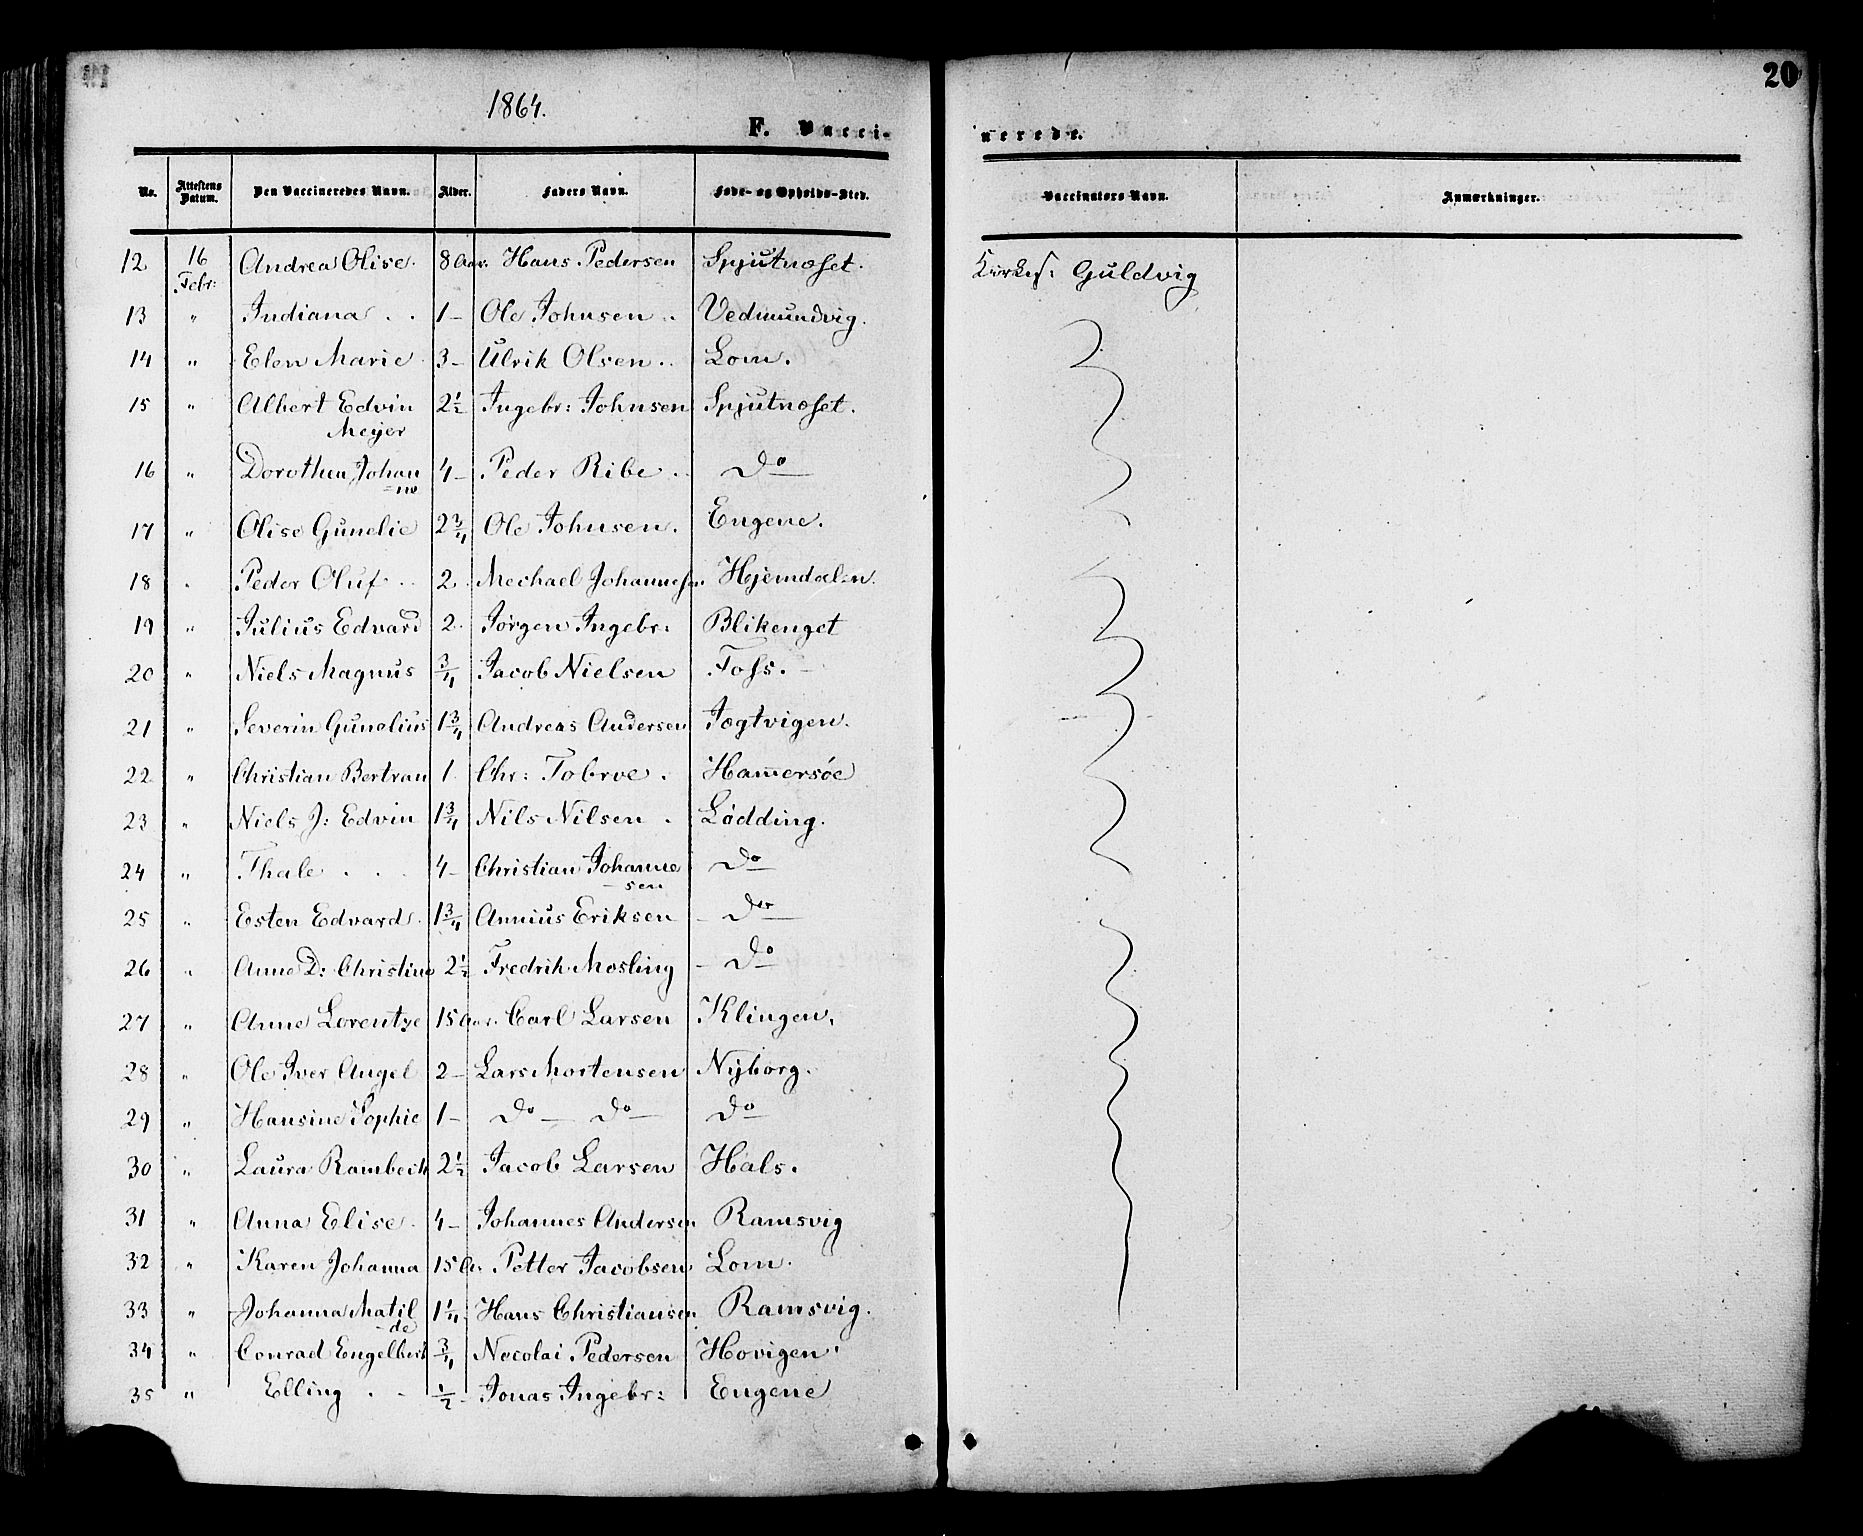 20
1864.
F. Vaccinerede.
No. Attestens Datum. Den Vaccineredes Navn. Alder. Faders Navn. Føde- og Opholds-Sted. Vaccinators Navn. Anmærkninger.
12 16 Febr: Andrea Olise. 8 Aar. Hans Pedersen Spjutnæset. Kirkes: Guldvig
13 " Indiana . . 1 – Ole Johnsen .. Vedmundvig.
14 " Elen Marie 3 – Ulrik Olsen .. Lom.
15 " Albert Edvin Meyer 2½ Ingebr: Johnsen Spjutnæset.
16 " Dorothea Johanne 4 – Peder Ribe .. Do
17 " Olise Gunelie 2¾ Ole Johnsen. Engene.
18 " Peder Oluf .. 2 Mechael Johannesen. Hjemdalen.
19 " Julius Edvard 2 Jørgen Ingebr: Blikenget
20 " Niels Magnus ¾ Jacob Nielsen Foss. –
21 " Severin Gunelius 1¾ Andreas Andersen Jogtvigen.
22 " Christian Bertran 1 Chr: Hammersøe
23 " Niels J: Edvin 1¾ Nils Nilsen . Lødding.
24 " Thale . . . 4 – Christian Johannesen Do
25 " Esten Edvard. 1¾ Annius Eriksen – Do
26 " Anne D: Christine 2½ Fredrik Mosling – Do
27 " Anne Lorentze 15 Aar. Carl Larsen Klingen.
28 " Ole Iver Angel 2 – Lars Mortensen Nyborg.
29 " Hansine Sophie 1 – Do – Do – Do
30 " Laura Rambech 2½ Jacob Larsen Hals.
31 " Anna Elise. 4 – Johannes Andersen Ramsvig
32 " Karen Johanna 15 A. Petter Jacobsen Lom.
33 " Johanna Matilde 1¼ Hans Christiansen Ramsvig.
34 " Conrad Engelbert ¾ Necolai Pedersen Hovigen
35 " Elling . - ½ Jonas Ingebr: Engene